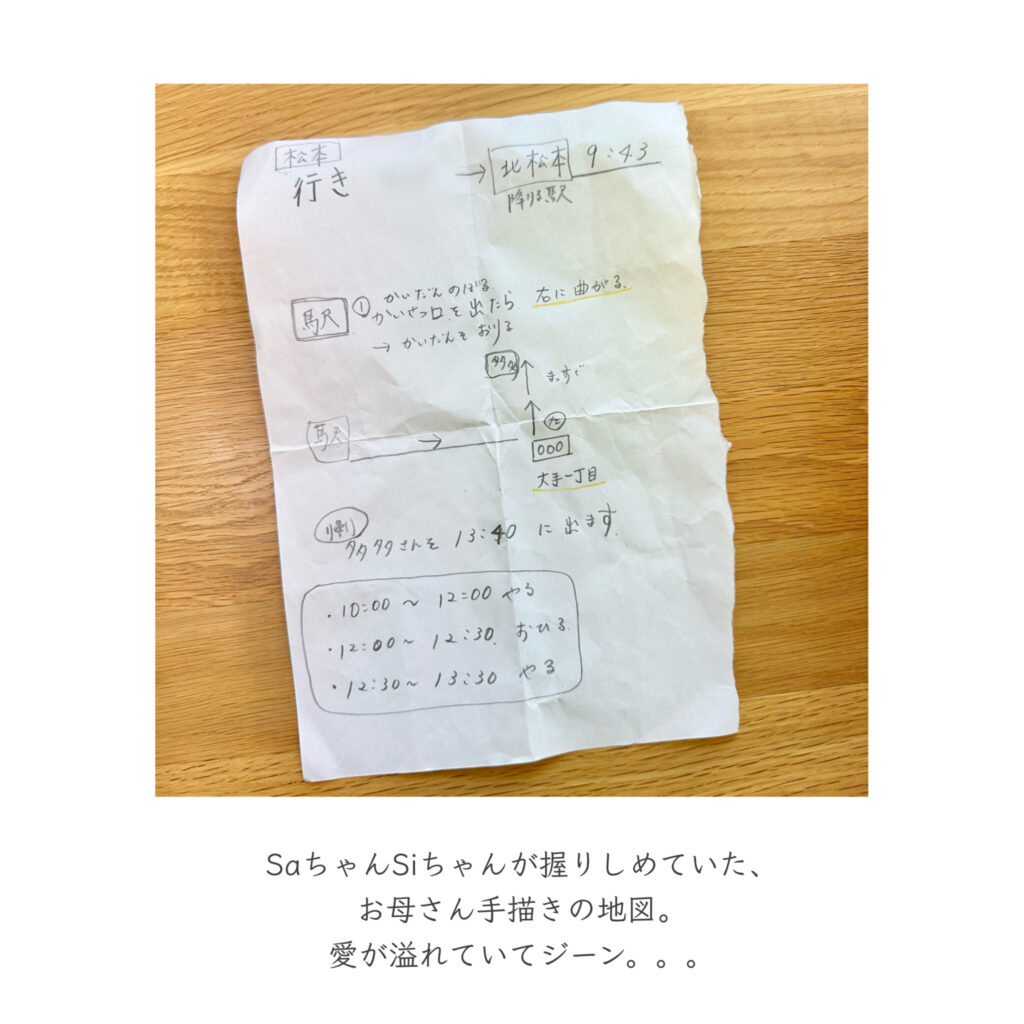 松本
行き
→ 北松本 9:43
降りる駅
駅 ① かいだんのぼる
かいさつ口を出たら 右に曲がる。
→ かいだんを おりる
タタタ
まっすぐ
駅 → 左
000
大手一丁目
帰り
タタタさんを 13:40 に 出ます.
・10:00 ～ 12:00 やる
・12:00 ～ 12:30. おひる
・12:30 ～ 13:30 やる
SaちゃんSiちゃんが握りしめていた、
お母さん手描きの地図。
愛が溢れていてジーン。。。